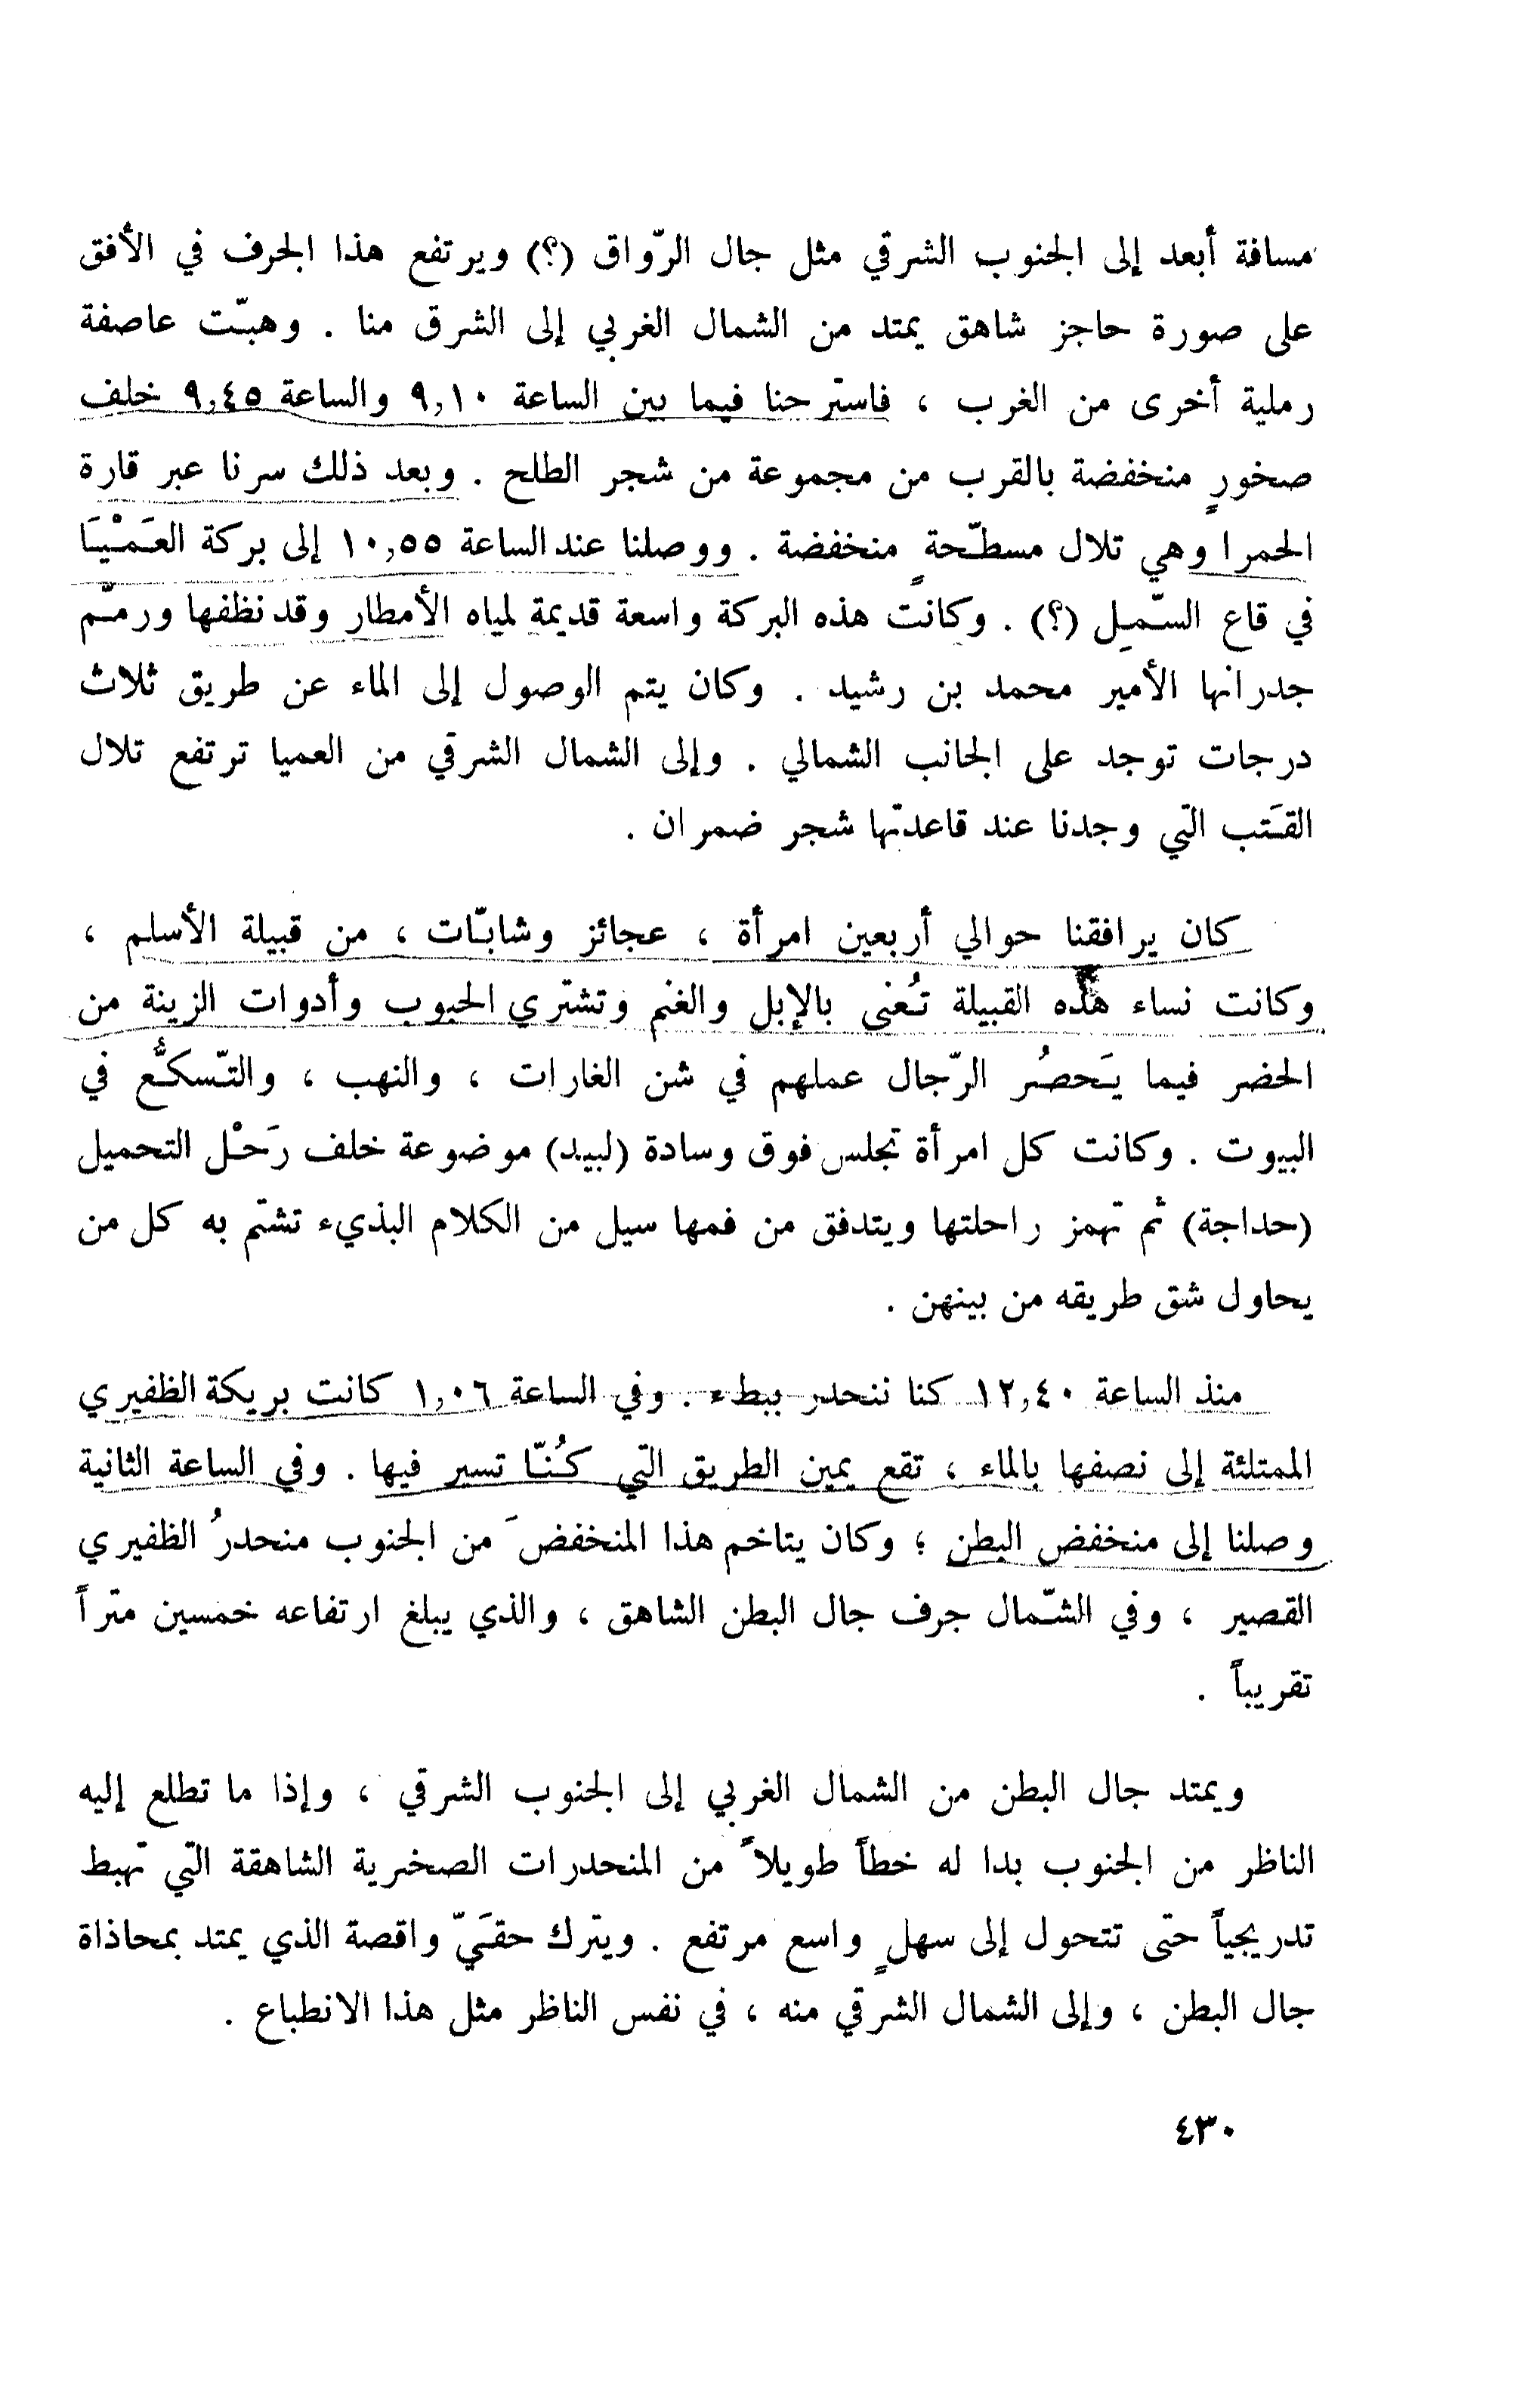 مسافة أبعد إلى الجنوب الشرقي مثل جال الرّواق (؟) ويرتفع هذا الجرف في الأفق
على صورة حاجز شاهق يمتد من الشمال الغربي إلى الشرق منا . وهبّت عاصفة
رملية أخرى من الغرب ، فاسترحنا فيما بين الساعة ٩,١٠ والساعة ٩,٤٥ خلف
صخورٍ منخفضة بالقرب من مجموعة من شجر الطلح . وبعد ذلك سرنا عبر قارة
الحمرا وهي تلال مسطّحةٍ منخفضة . ووصلنا عند الساعة ١٠,٥٥ إلى بركة العَمْيَا
في قاع السّمِل (؟) . وكانت هذه البركة واسعة قديمة لمياه الأمطار وقد نظفها ورمّم
جدرانها الأمير محمد بن رشيد . وكان يتم الوصول إلى الماء عن طريق ثلاث
درجات توجد على الجانب الشمالي . وإلى الشمال الشرقي من العميا ترتفع تلال
القَتب التي وجدنا عند قاعدتها شجر ضمران .
كان يرافقنا حوالي أربعين امرأة ، عجائز وشابّات ، من قبيلة الأسلم ،
وكانت نساء هذه القبيلة تُعنى بالإبل والغنم وتشتري الحبوب وأدوات الزينة من
الحضر فيما يَحصُر الرّجال عملهم في شن الغارات ، والنهب ، والتّسكُّع في
البيوت . وكانت كل امرأة تجلس فوق وسادة (لبيد) موضوعة خلف رَحْل التحميل
(حداجة) ثم تهمز راحلتها ويتدفق من فمها سيل من الكلام البذيء تشتم به كل من
يحاول شق طريقه من بينهن .
منذ الساعة ١٢,٤٠ كنا ننحدر ببطء . وفي الساعة ١,٠٦ كانت بريكة الظفيري
الممتلئة إلى نصفها بالماء ، تقع يمين الطريق التي كُنّا تسير فيها . وفي الساعة الثانية
وصلنا إلى منخفض البطن ؛ وكان يتاخم هذا المنخفضَ من الجنوب منحدرُ الظفيري
القصير ، وفي الشّمال جرف جال البطن الشاهق ، والذي يبلغ ارتفاعه خمسين متراً
تقريباً .
ويمتد جال البطن من الشمال الغربي إلى الجنوب الشرقي ، وإذا ما تطلع إليه
الناظر من الجنوب بدا له خطاً طويلاً من المنحدرات الصخرية الشاهقة التي تهبط
تدريجياً حتى تتحول إلى سهلٍ واسع مرتفع . ويترك حقَيّ واقصة الذي يمتد بمحاذاة
جال البطن ، وإلى الشمال الشرقي منه ، في نفس الناظر مثل هذا الانطباع .
٤٣٠